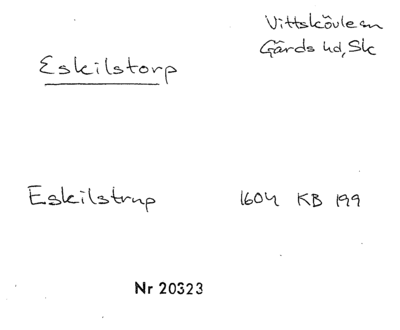 Vittskövle sn
Gärds hd, Sk
Eskilstorp
Eskilstrup 1604 KB 199
Nr 20323